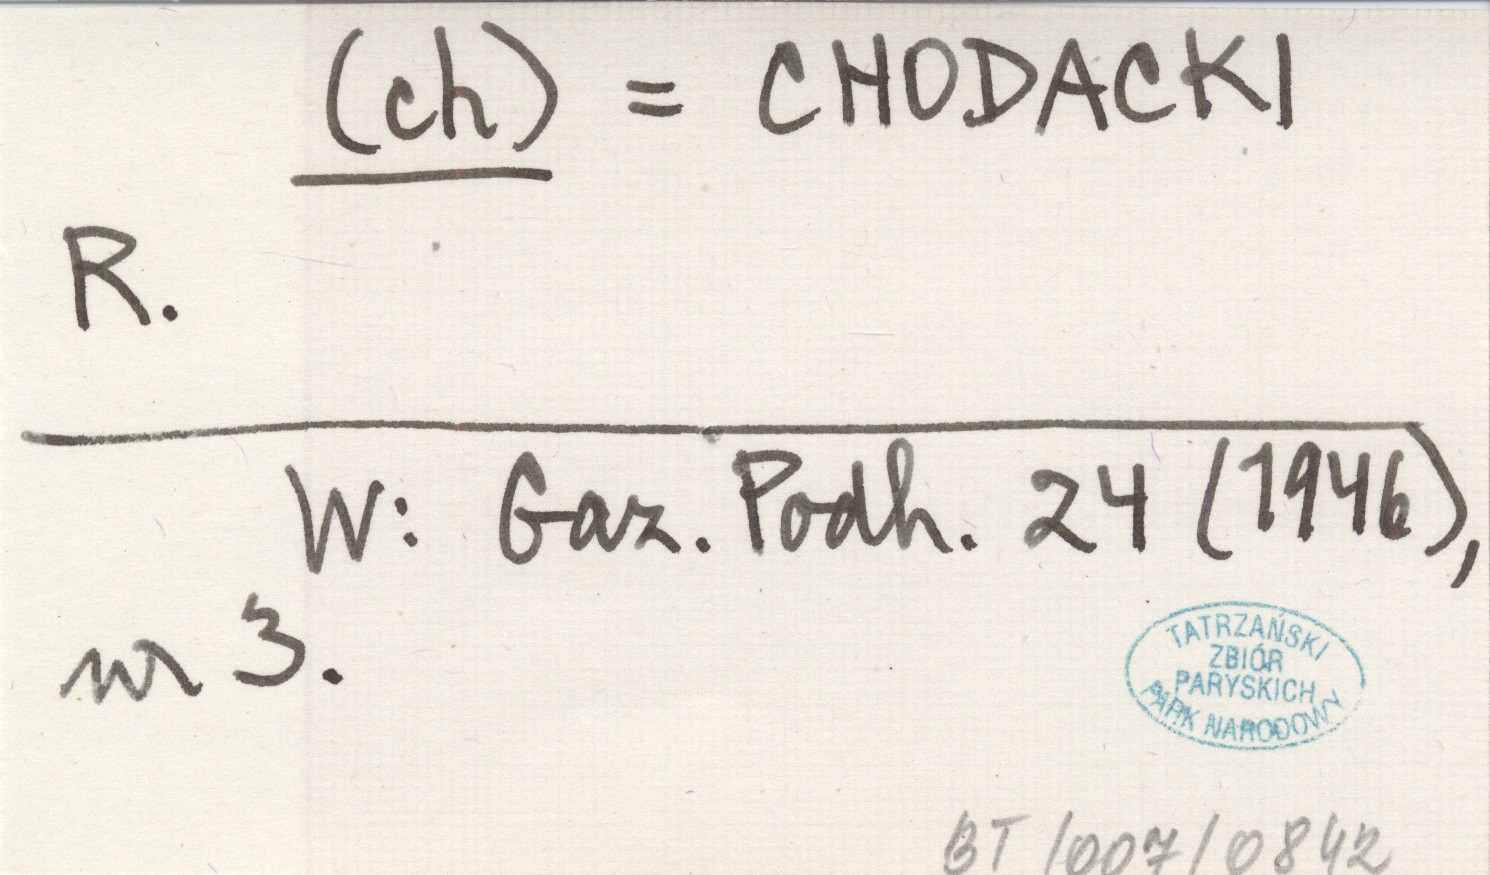 (ch) = CHODACKI
R.
W: Gaz. Podh. 24 (1946),
nr 3.
TATRZAŃSKI
ZBIÓR
PARYSKICH
PARK NARODOWY
BT/007/0842